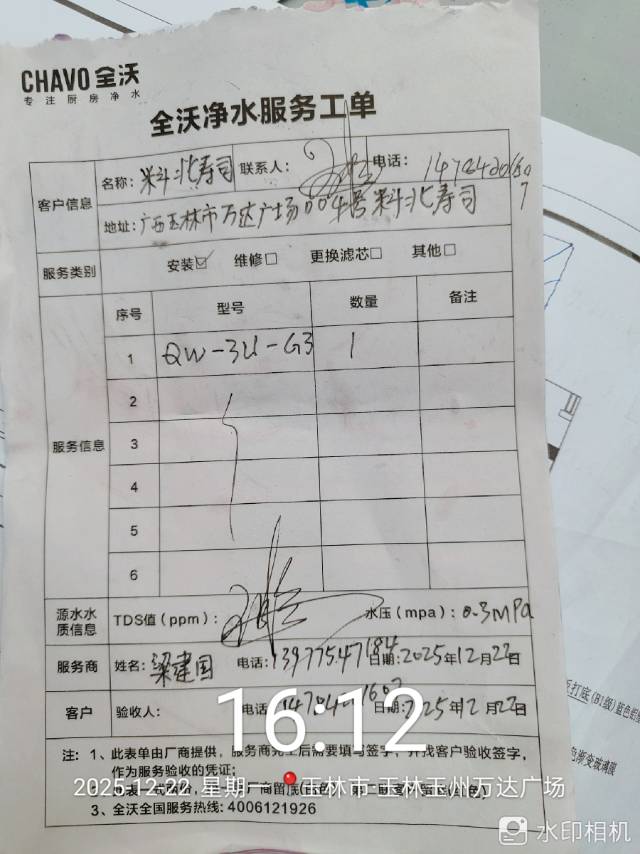 CHAVO 全沃
专注厨房净水
全沃净水服务工单
客户信息 名称: 米斗北寿司 联系人: 电话:
地址: 广西玉林市万达广场 米斗北寿司
服务类别 安装☑ 维修□ 更换滤芯□ 其他□
服务信息 序号 型号 数量 备注
1 QW-3U-G3 1
2
3
4
5
6
源水水质信息 TDS值（ppm）: 水压（mpa）: 0.3MPa
服务商 姓名: 梁建国 电话: 日期: 2025年12月22日
客户 验收人: 电话: 日期: 2025年12月22日
16:12
注: 1、此表单由厂商提供，服务商完工后需要填写签字，并找客户验收签字，
作为服务验收的凭证；
2025.12.22 星期一 玉林市·玉林玉州万达广场
3、全沃全国服务热线: 4006121926
水印相机
打底(B1级)蓝色铝
色渐变玻璃膜